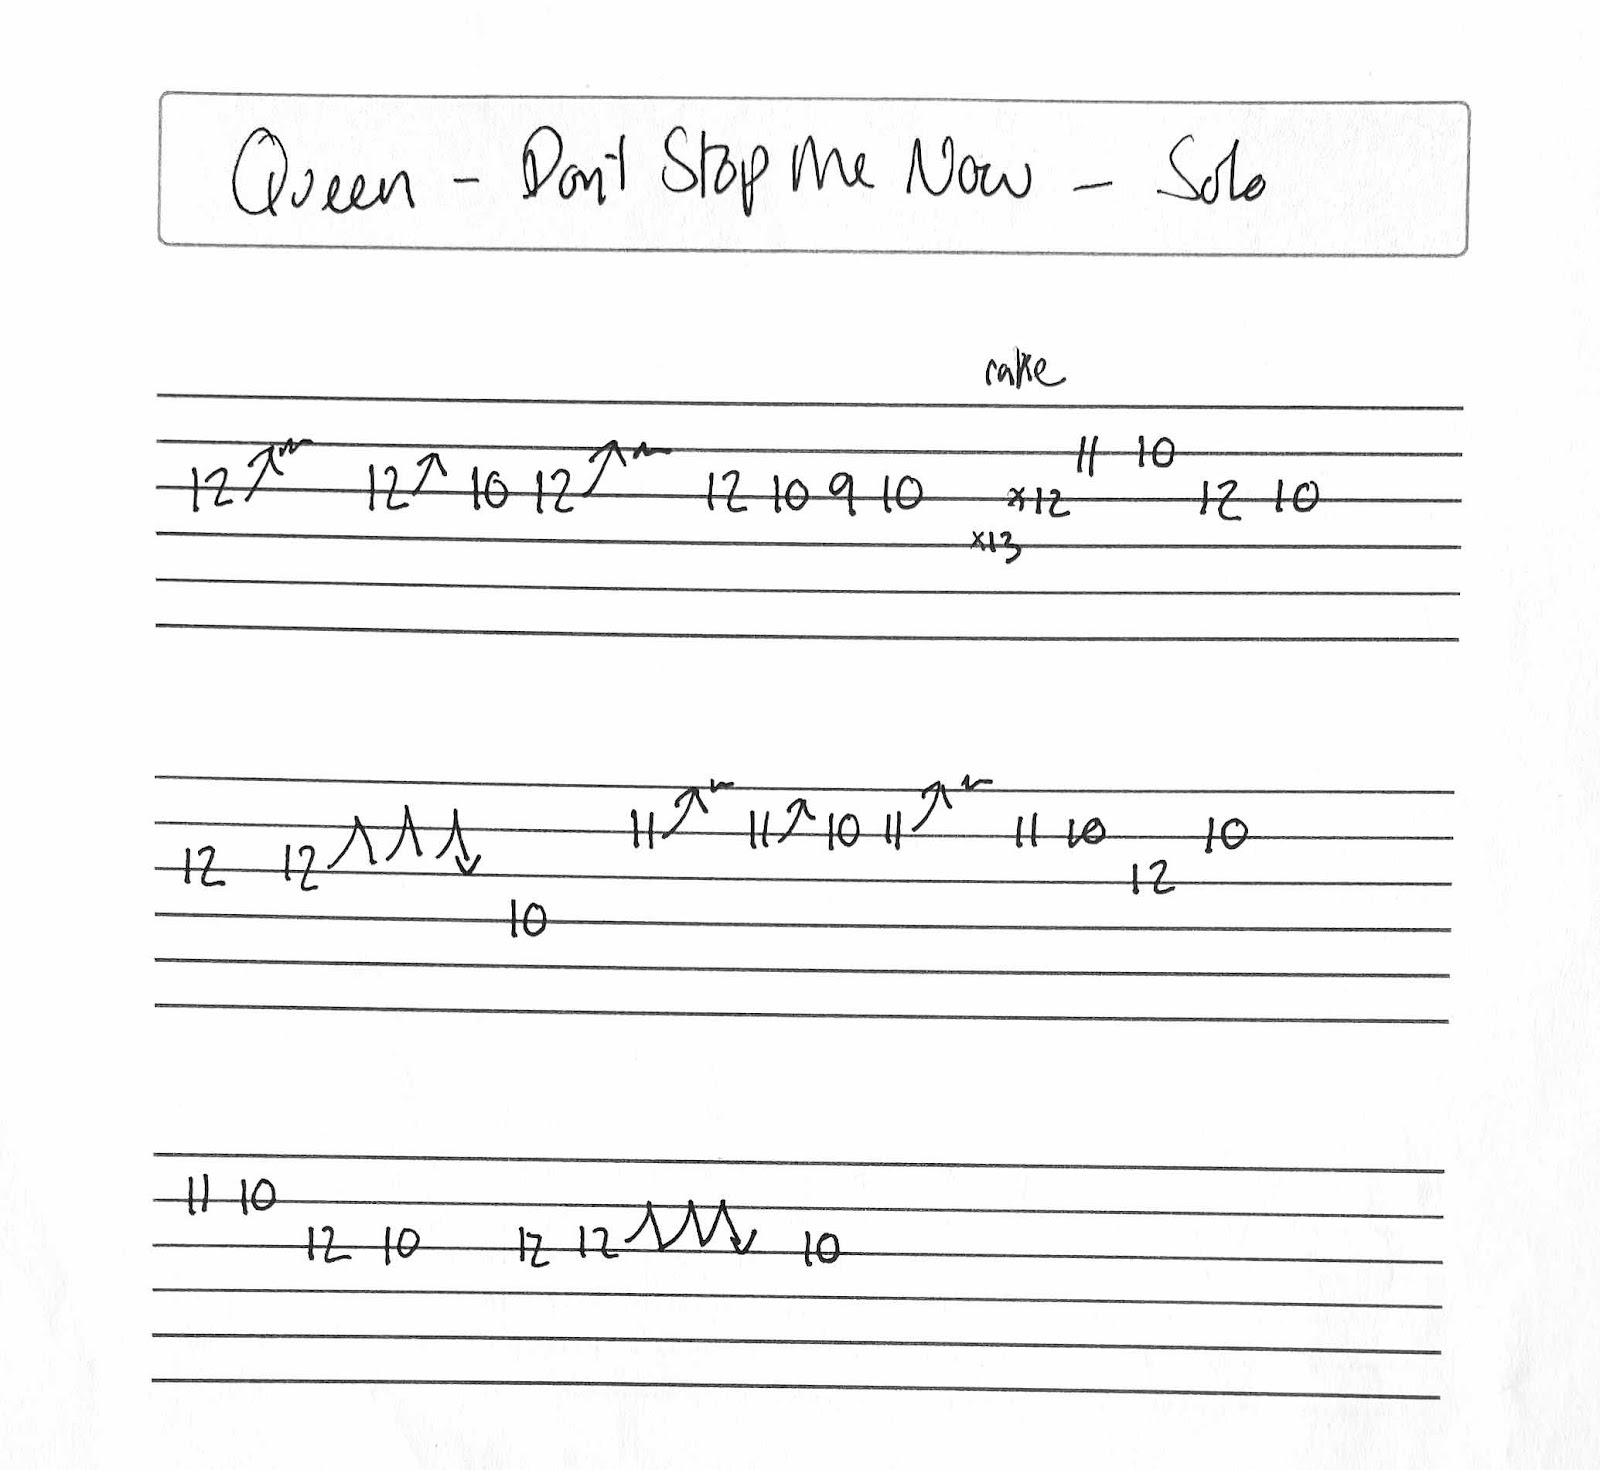 Queen - Don't Stop Me Now - Solo
rake
12 12 10 12 12 10 9 10 x13 x12 11 10 12 10
12 12 10 11 11 10 11 11 10 12 10
11 10 12 10 12 12 10